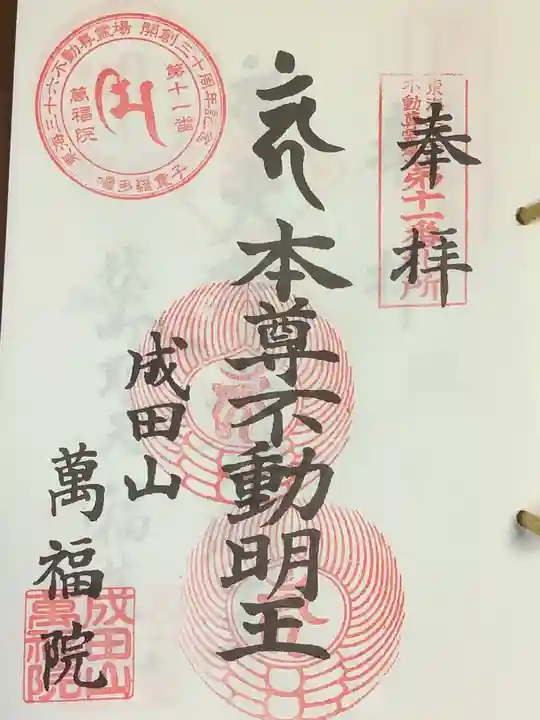 奉拝
東海三十六不動尊霊場
第十一番札所
本尊不動明王
成田山
萬福院
東海三十六不動尊霊場 開創三十周年記念
第十一番
萬福院
成田山
萬福院